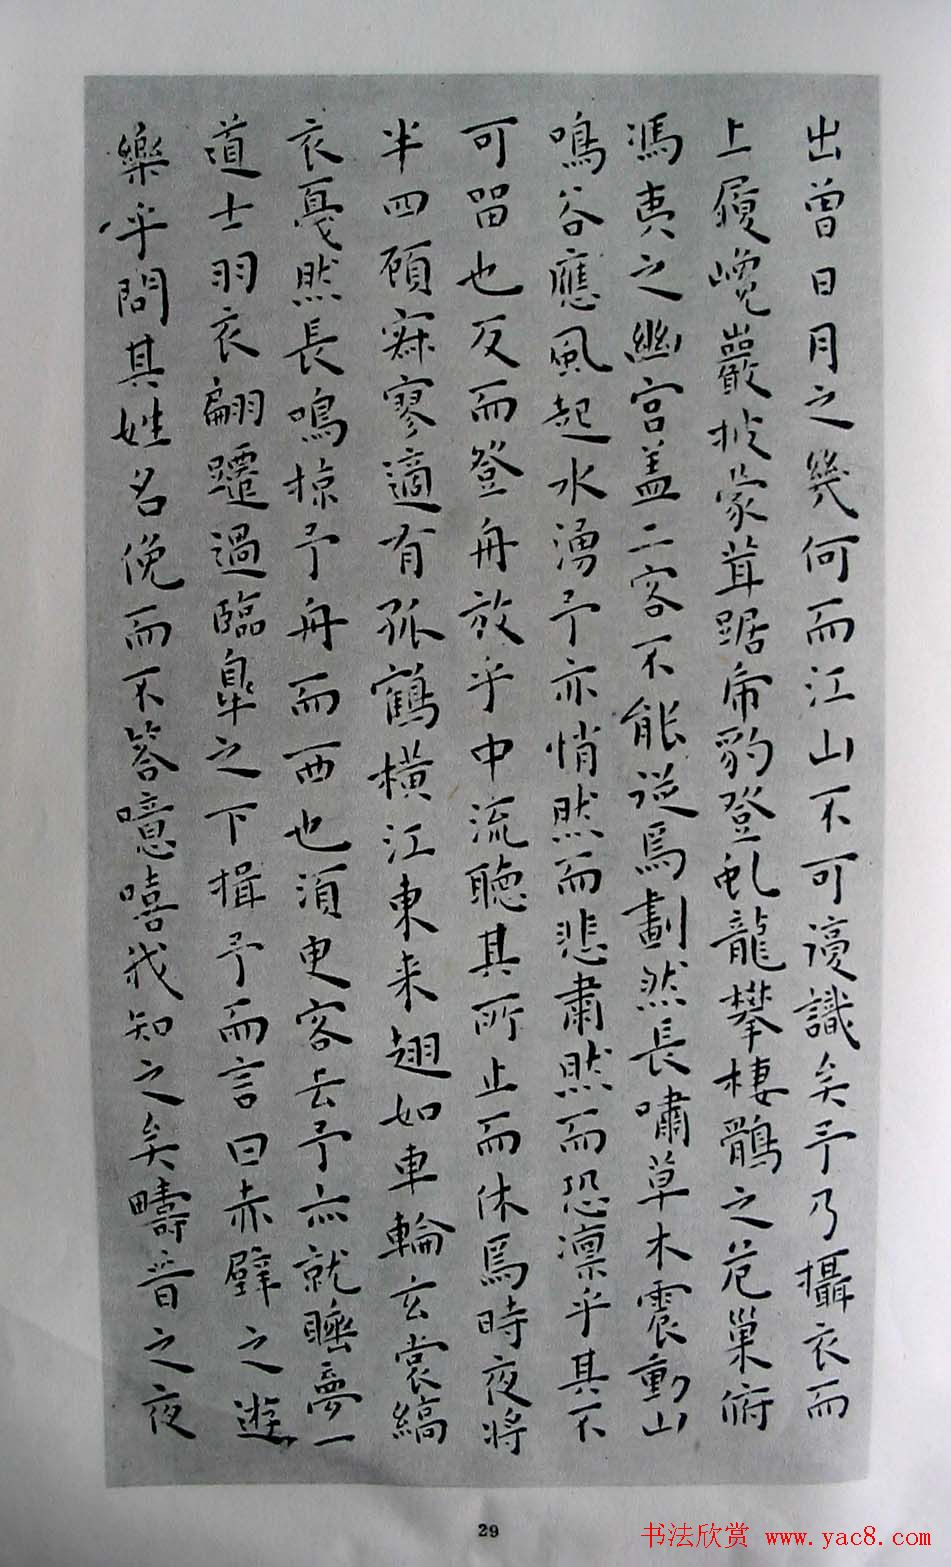 出曾日月之幾何而江山不可復識矣予乃攝衣而
上履巉巖披蒙茸踞虎豹登虬龍攀棲鶻之危巢俯
馮夷之幽宮盖二客不能從焉劃然長嘯草木震動山
鳴谷應風起水湧予亦悄然而悲肅然而恐凛乎其不
可留也反而登舟放乎中流聽其所止而休焉時夜將
半四顧寂寥適有孤鶴橫江東来翅如車輪玄裳縞
衣戛然長鳴掠予舟而西也須臾客去予亦就睡夢一
道士羽衣翩躚過臨臯之下揖予而言曰赤壁之遊
樂乎問其姓名俛而不答噫嘻我知之矣疇昔之夜
29
书法欣赏 www.yac8.com